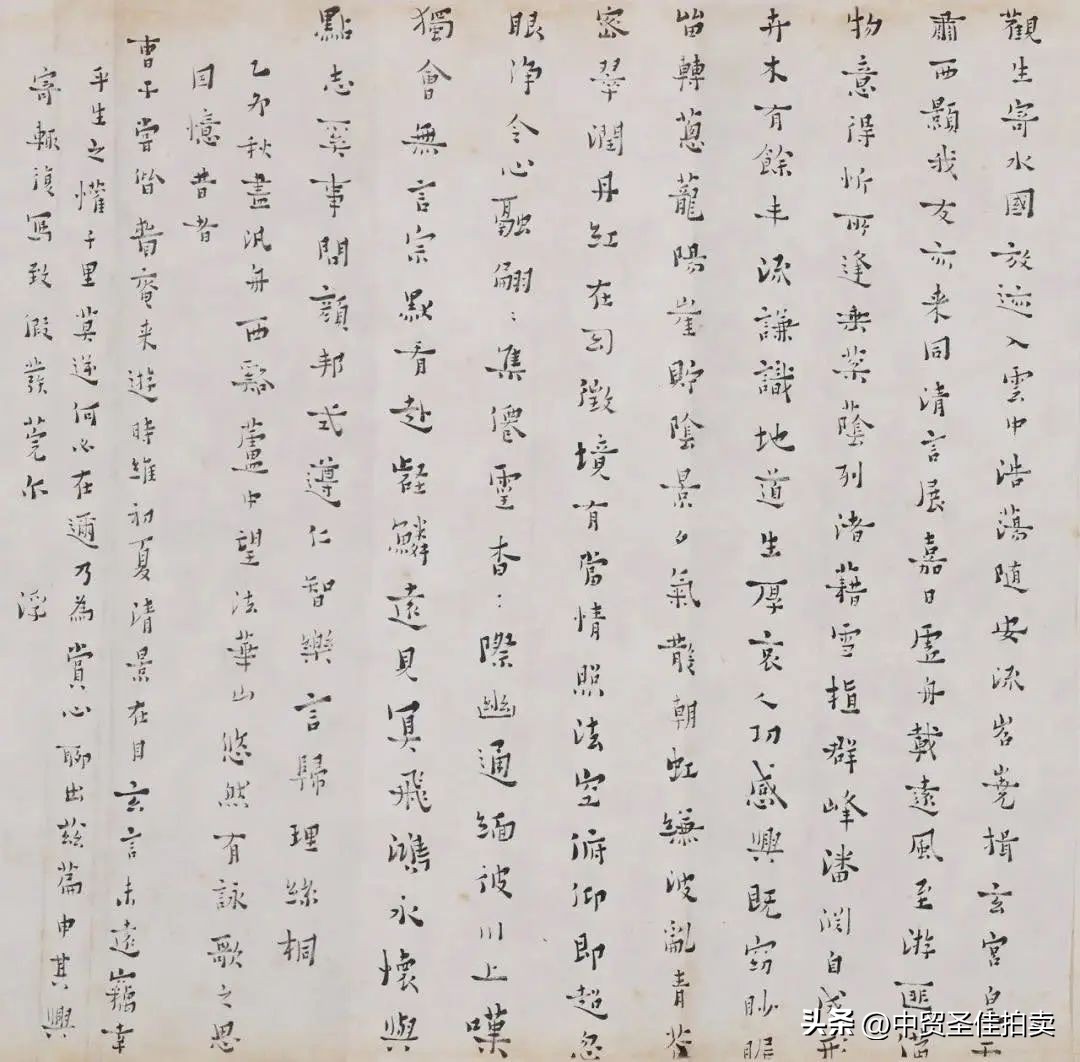 觀生寄水國放迹入雲中浩蕩随安流岧嶤揖玄宮皇
肅西顥我友亦来同清言展嘉日虛舟戴遠風至游匪
物意得忻所逢乘葉蔭列渚藉雪指群峰潘渊自成
卉木有餘丰流謙識地道生厚哀人功感興既窈眇
轉蔥蘢陽崖貯陰景夕氣散朝虹縑波亂青苍
密翠潤丹紅在勾徵境有當情照法空俯仰即超忽
眼净令心融翩:集僊靈杳:際幽通緬彼川上嘆
獨會無言宗默看赴壑鱗遠見冥飛鴻永懷與
點志奚事問顏邦式遵仁智樂言歸理絲桐
乙卯秋盡汎舟西谿蘆中望法華山悠然有詠歌之思
因憶昔者
曹子嘗偕耆奮来遊時維初夏清景在目玄言未遠竊幸
平生之懽千里莫逆何必在邇乃為賞心聊出茲篇申其興
寄輒復写致假發莞尔 浮
头条 @中贸圣佳拍卖